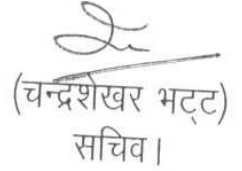 (चन्द्रशेखर भट्ट)
सचिव।